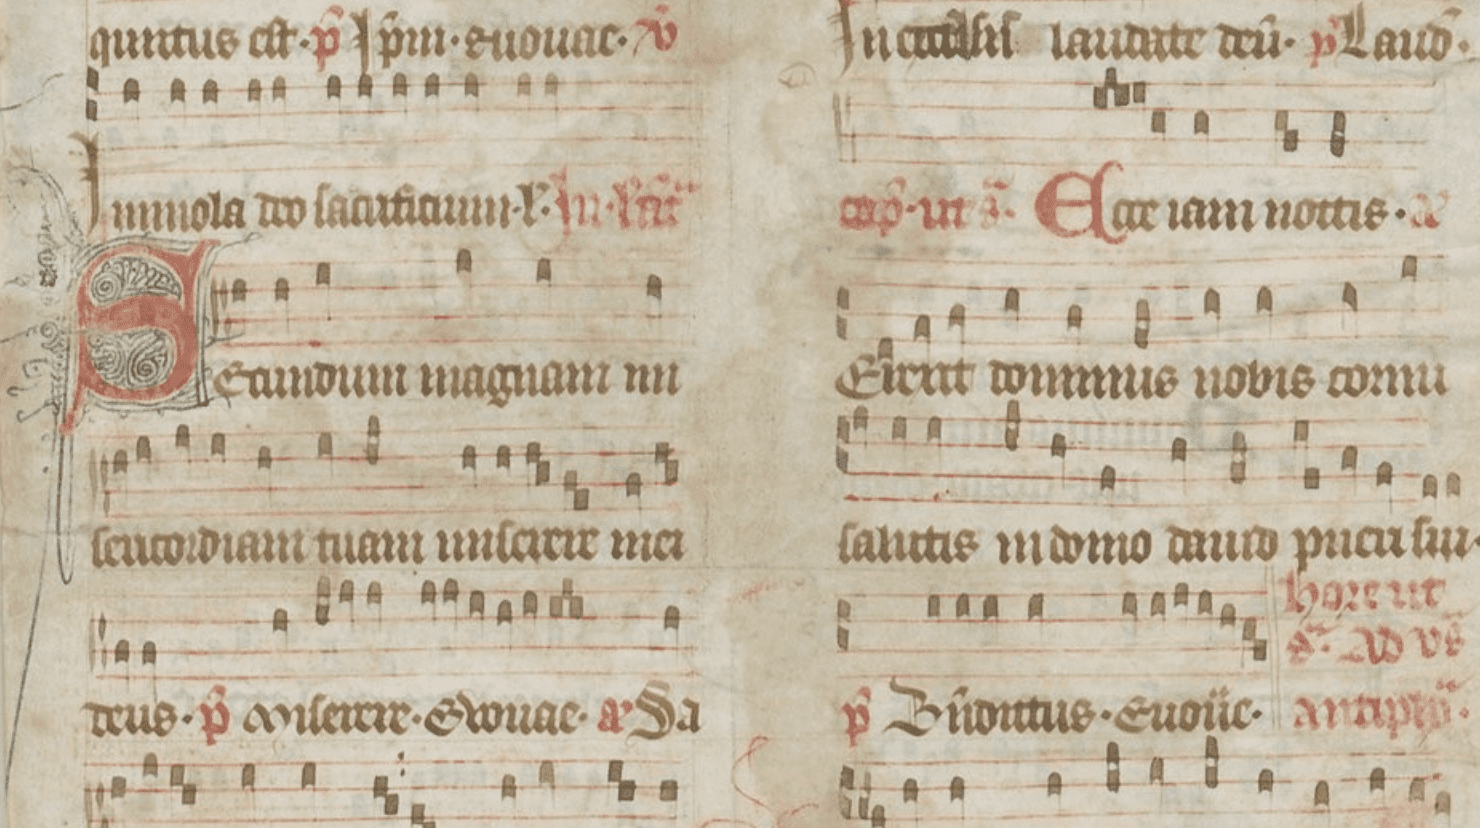 quintus est. p̄ Ip̄m. euouae. v̄
Immola deo sacrificium. l̄.
Secundum magnam mi
sericordiam tuam miserere mei
deus. p̄ Miserere. Evouae. a Sa
In excelsis laudate deū. p̄ Laud̄.
cap̄. ut s̄. Ecce iam noctis. a
Erexit dominus nobis cornu
salutis in domo david pueri sui.
hore ut
s̄. Ad vs̄
p̄ Bn̄dictus. Euoūe. antiph̄.